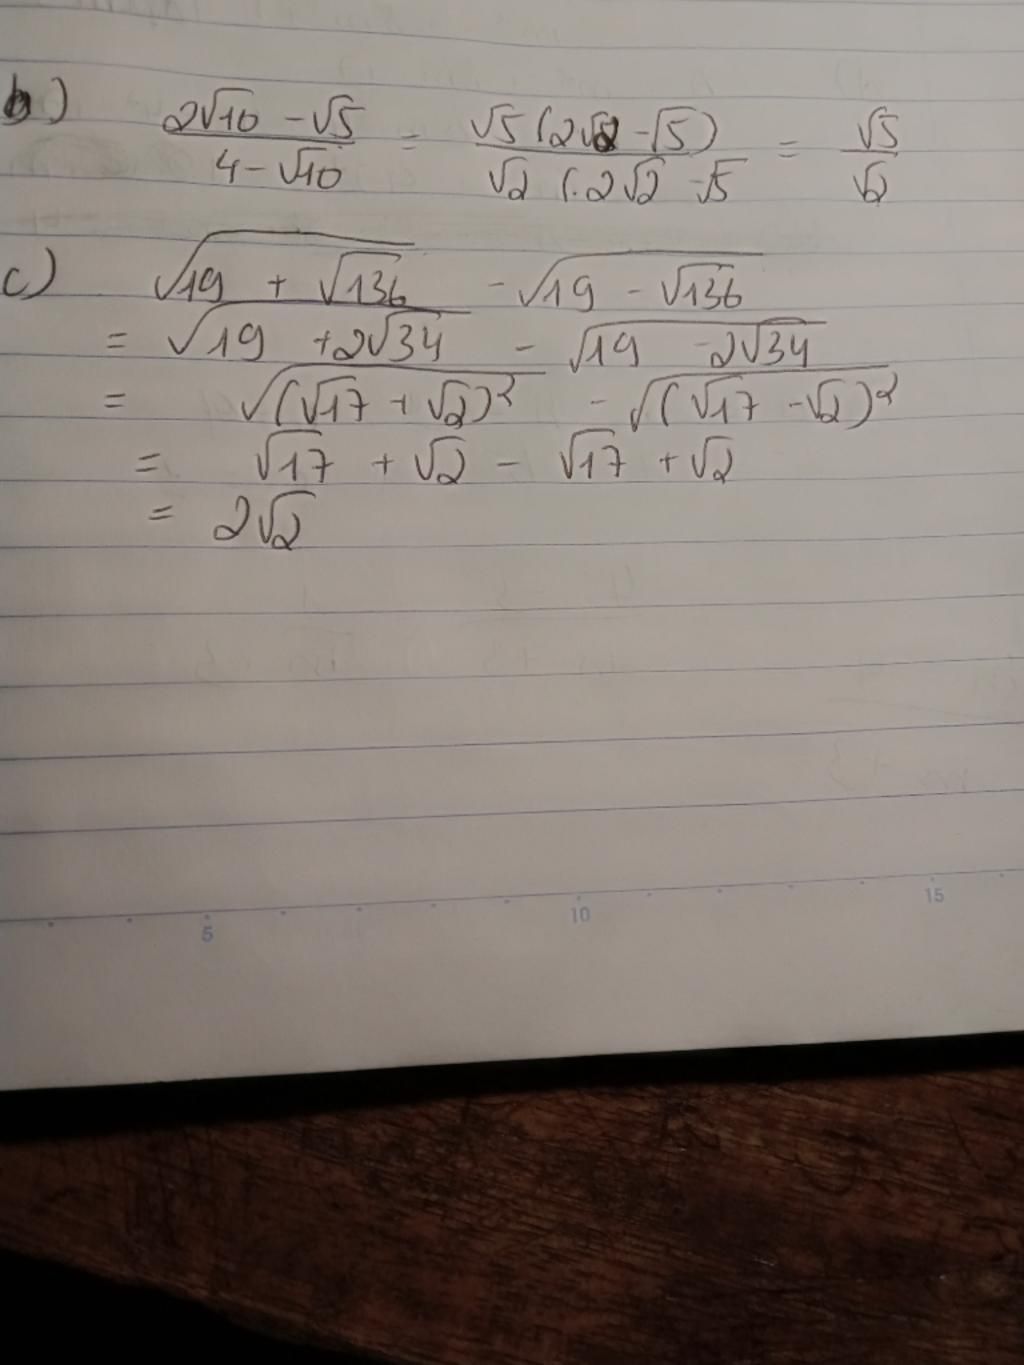 b) (2√10 - √5)/(4 - √10) = (√5 (2√2 - √5))/(√2 (.2√2 - √5) = √5/√2
c) √(19 + √136) - √(19 - √136)
= √(19 + 2√34) - √(19 - 2√34)
= √((√17 + √2)²) - √((√17 - √2)²)
= √17 + √2 - √17 + √2
= 2√2
5 10 15